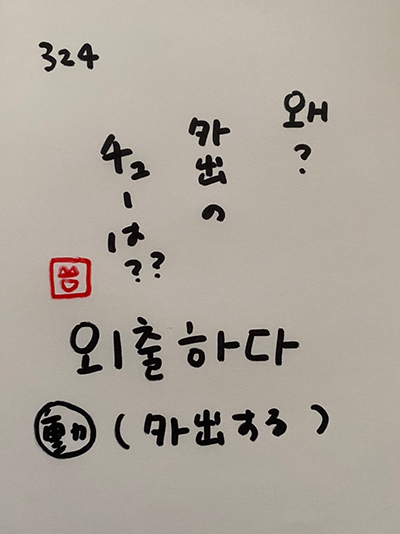 324
왜?
外出の
チューは??
외출하다
動 (外出する)